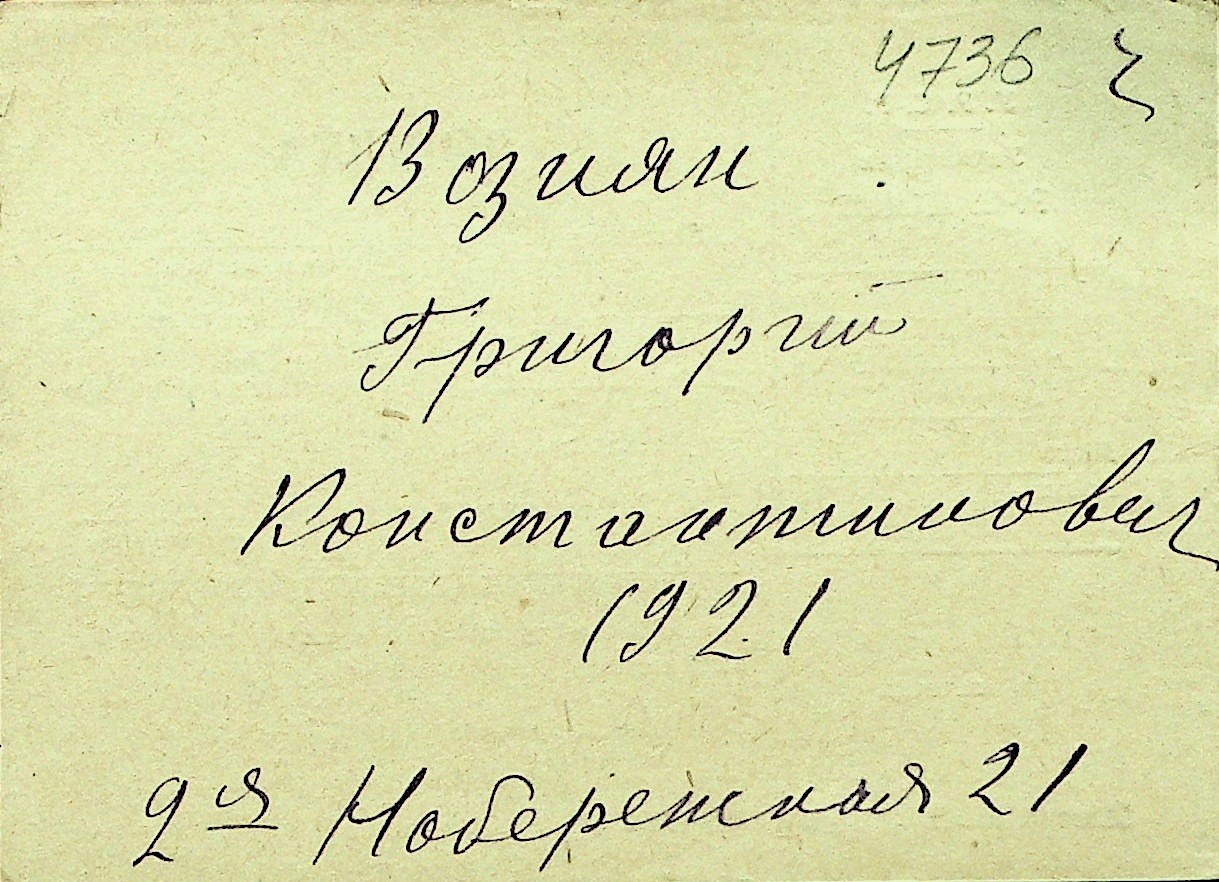 4736 ч
Возиян
Григорий
Константинович
1921
2я Набережная 21